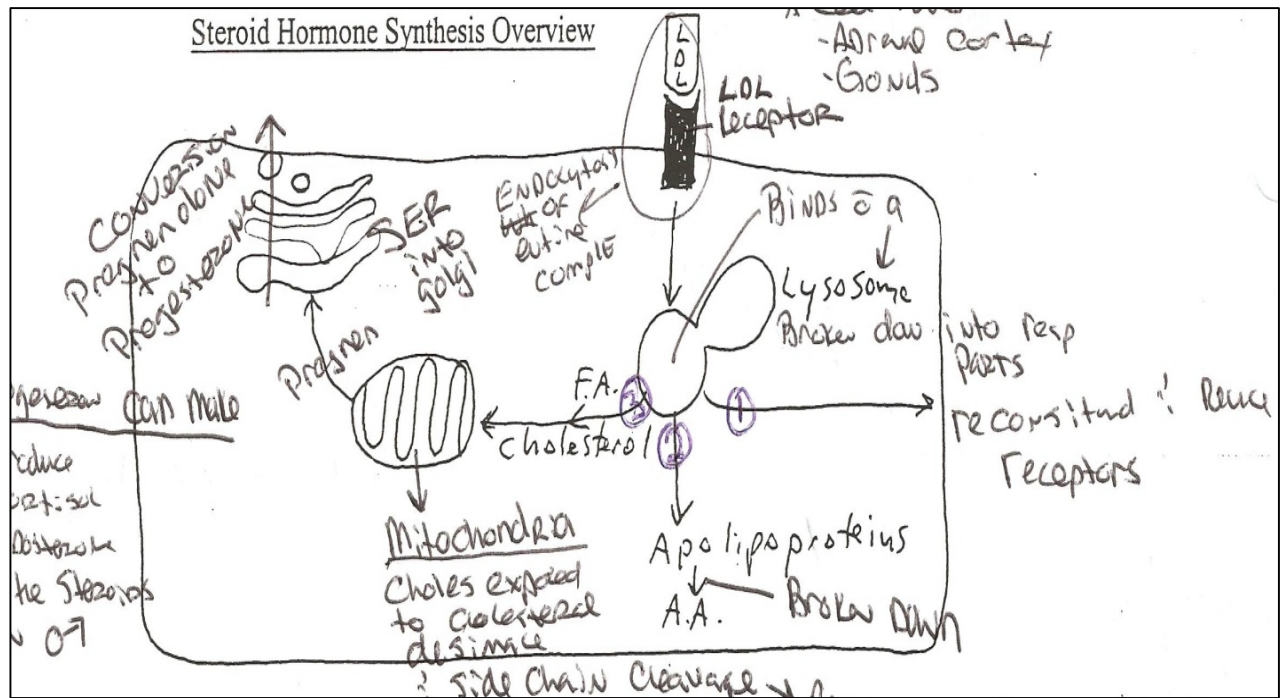 Steroid Hormone Synthesis Overview
-Adrenal Cortex
-Gonds
LDL
LDL
receptor
Conversion
Pregnenolone
to
Progesterone
SER
into
golgi
Endocytosis
of
entire
comple
Binds c̄ a
Lysosome
Broken down into resp
Parts
Pregnen
F.A.
Cholesterol
③
②
①
reconsitud & Reuse
receptors
can make
Mitochondria
Choles exposed
to Cholesteral
& side chain Cleavage
Apolipoproteins
A.A.
Broken Down
the Steroids